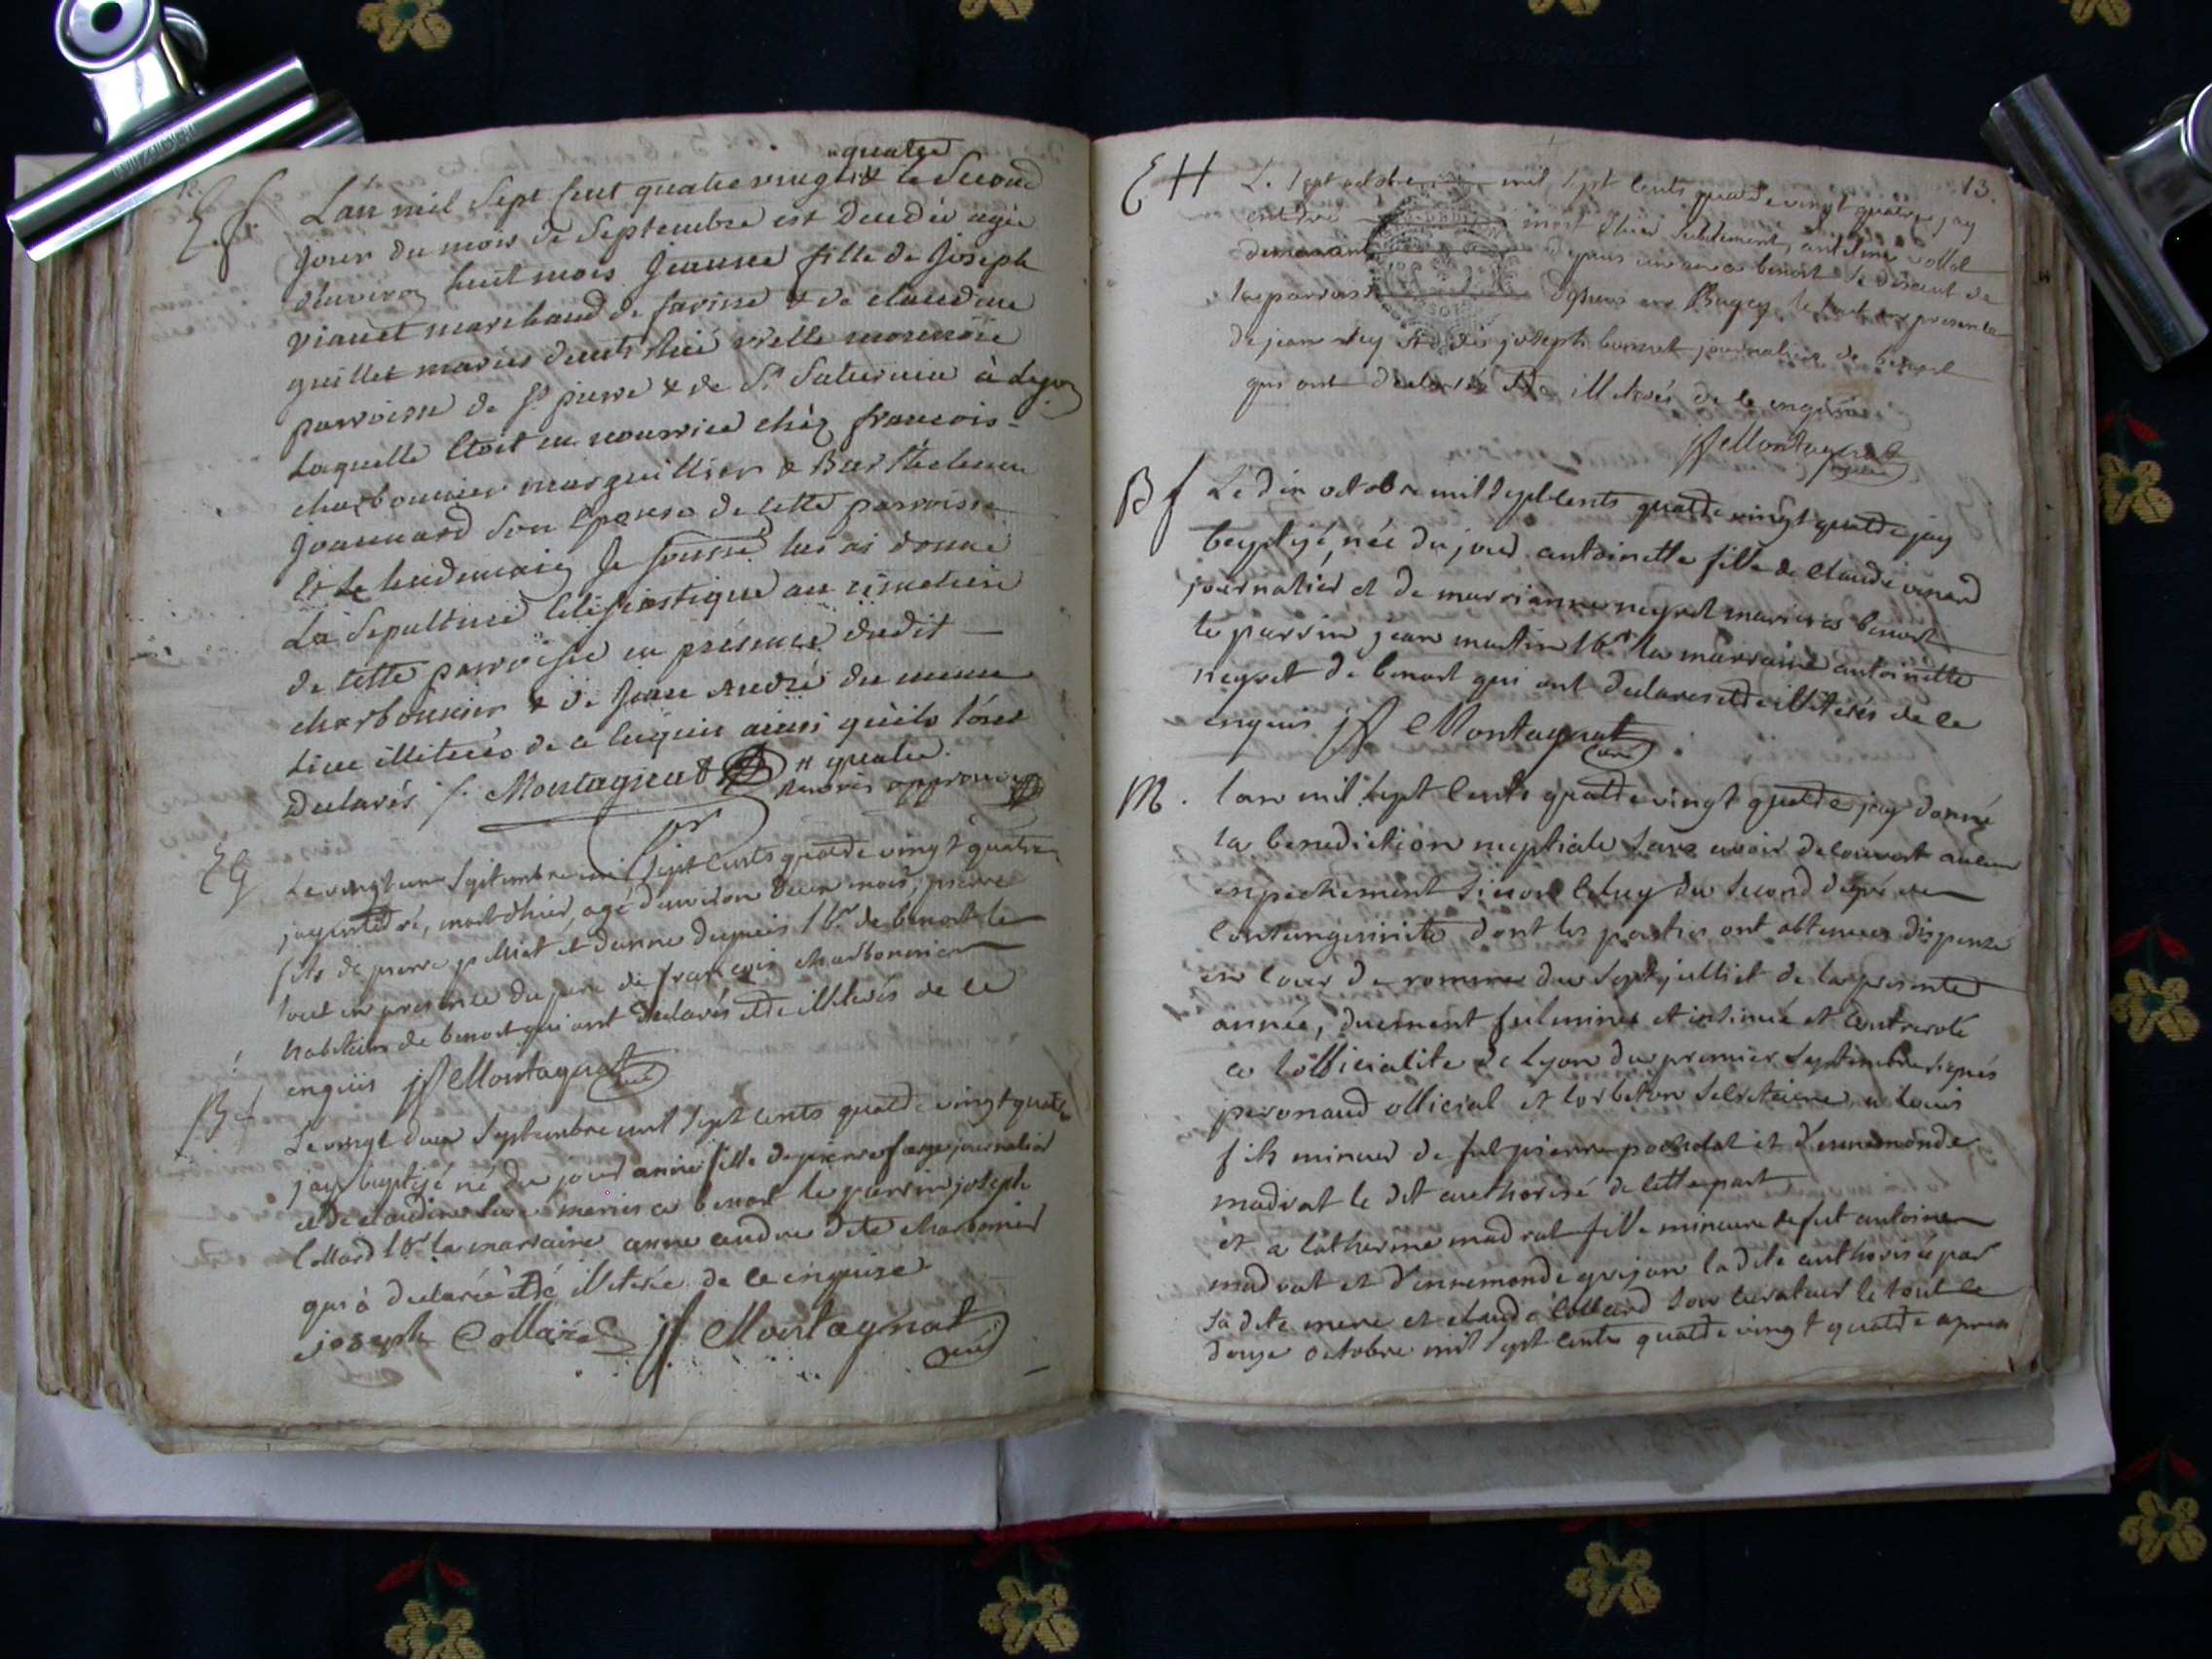 12.
E. f.
"quatre
L'an mil Sept Cent quatre vingt & le Second
jour du mois de Septembre est decedée agée
d'environ huit mois Jeanne fille de Joseph
vianet marchand de farine & de claudine
guillet mariés
parroisse de St pierre & de St Saturnin à Lyon
Laquelle etoit en nourrice chéz francois
charbonnier marguillier & Barthelemie
Joannard Son Epouse de cette parroisse
Et le lendemain Je soussigné lui ai donné
La Sepulture Eclesiastique au cimetiere
de cette parroisse en présence dudit
charbonnier & de Jean André du meme
Lieu illiterés de ce Enquis ainsi quils l'ont
Declarés /. Montagnat " quatre
curé
EG
Le vingt un Septembre mil Sept Cents quatre vingt quatre
jay enterré, mort d'hier, agé d'environ deux mois, pierre
fils de pierre pelliat et d'anne dupuis lbr de benost le
tout en presence du pere de françois charbonnier
habitans de benost qui ont declarés etre illiterés de ce
enquis jf Montagnat curé
Bf
Le vingt deux Septembre mil Sept Cents quatre vingt quatre
jay baptisé né du jour anne fille de pierre farge journalier
et de claudine mariés a benost le parrin joseph
Collard lbr la marraine anne andre dite charbonnier
qui à declarée etre illiterée de ce enquise
joseph Collard jf Montagnat
curé
13.
EH
Le Sept octobre mil Sept Cents quatre vingt quatre jay
enterré mort d'hier Subitement, antelme
demeurant depuis un an a benost Se disant de
la parroisse en Bugey le tout en presence
de jean et de joseph bonnet journalier de benost
qui ont declarés etre illiterés de ce enquis
jf Montagnat
curé
Bf
Le dix octobre mil Sept Cents quatre vingt quatre jay
baptisé, née du jour antoinette fille de claude venard
journalier et de marrianne neyret mariés a benost
le parrin jean martin lbr la marraine antoinette
neyret de benost qui ont declares etre illiterés de ce
enquis jf Montagnat
curé
M.
lan mil Sept Cents quatre vingt quatre jay donné
la benediction nuptiale Sans avoir decouvert aucun
enpechement Sinon Celuy du Second degré de
Consanguinité dont les parties ont obtenues dispense
en Cour de romme du Sept juilliet de la presente
année, duement fulminée et insinuée et Controlé
a l'officialite de Lyon du premier Septembre Signés
peronaud official et Corbeton Secretaire, a Louis
fils mineur de fut pierre pochotat et d'ennemonde
madrat le dit authorisé de cette part
et a Catherine madrat fille mineure de fut antoine
madrat et d'ennemonde grijan ladite authorisée par
Sa dite mere et claude Collard Son curateur le tout le
douze octobre mil Sept Cents quatre vingt quatre apres